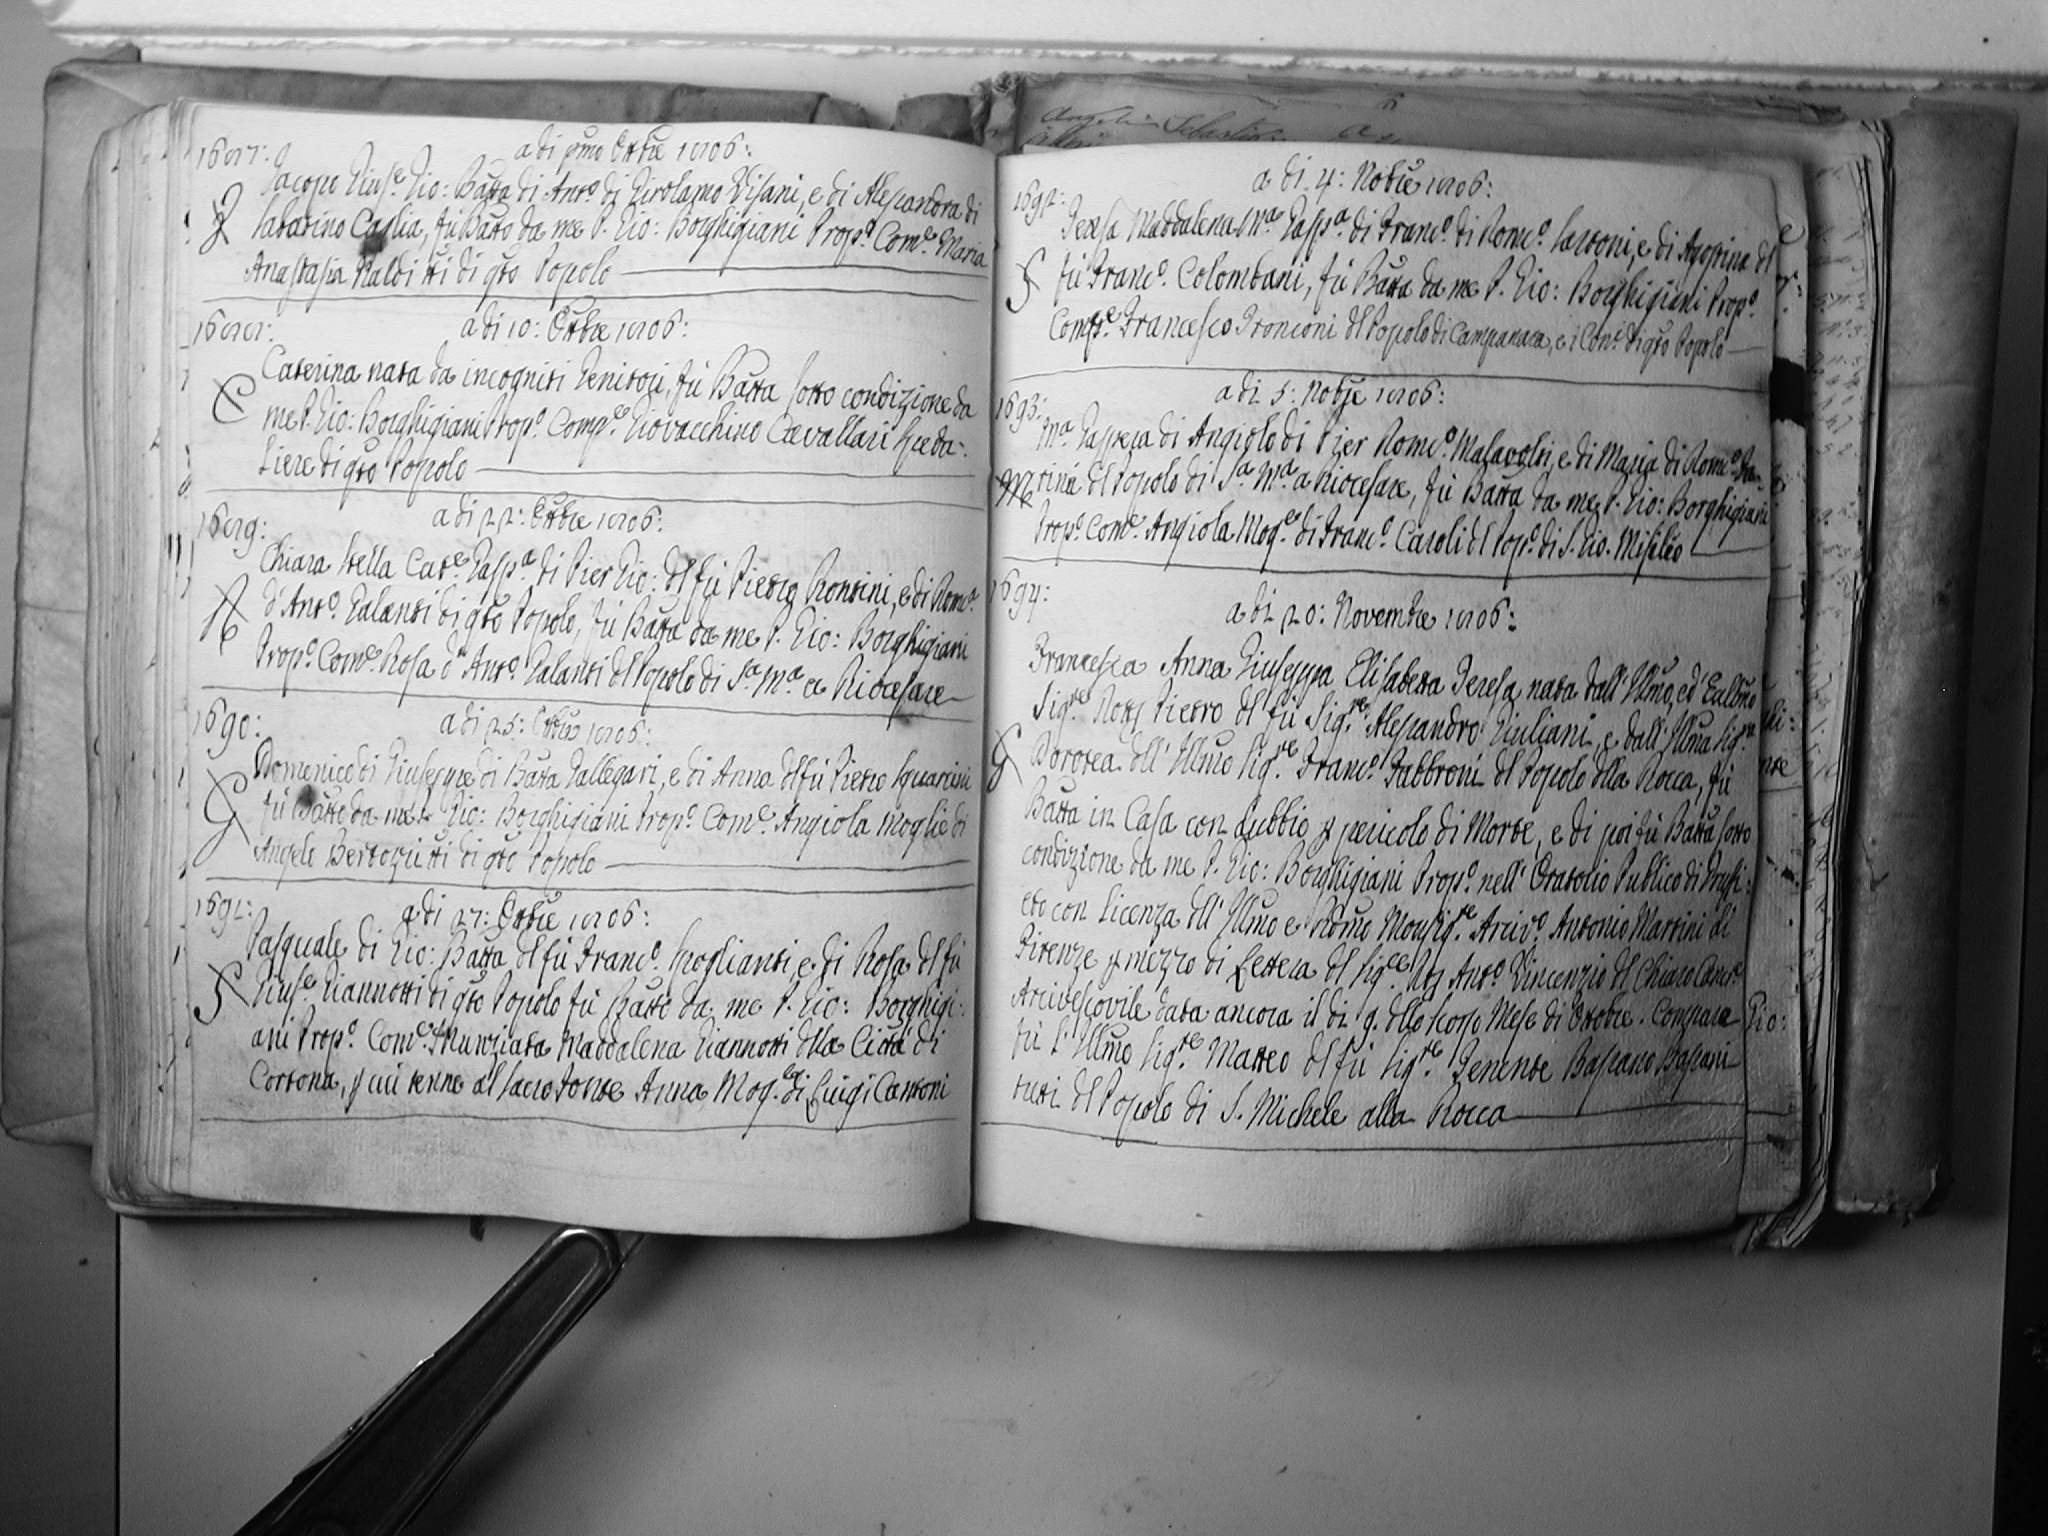 1687:
a di pmo Ottbre 1786:
Jacopo Giuse Gio: Batta di Anto di Girolamo Visani, e di Alessandra di
Sabatino Caglia, fù Batto da me P. Gio: Borghigiani Propo Come Maria
Anastasia Naldi tti di qto Popolo
1688:
a di 10: Ottbre 1786:
C
Caterina nata da incogniti Genitori, fù Batta sotto condizione da
me P. Gio: Borghigiani Propo Compe Giovacchino Cavallari Speda-
liere di qto Popolo
1689:
a di 22: Ottbre 1786:
R
Chiara Stella Cate Gaspa di Pier Gio: dl fù Pietro Rontini, e di Roma
d'Anto Galanti di qto Popolo, fù Batta da me P. Gio: Borghigiani
Propo Come Rosa d'Anto Galanti dl Popolo di Sa Ma a Riocesare
1690:
a di 25: Ottbre 1786:
G
Domenico di Giuseppe di Batta Gallegari, e di Anna dl fù Pietro Squarcini
fù Batto da me P. Gio: Borghigiani Propo Come Angiola Moglie di
Angelo Bertozzi tti di qto Popolo
1691:
a di 27: Ottbre 1786:
S
Pasquale di Gio: Batta dl fù Franco Spoglianti, e di Rosa dl fù
Giuse Giannotti di qto Popolo fù Batto da me P. Gio: Borghigi:
ani Propo Come Nunziata Maddalena Giannotti dlla Città di
Cortona, p cui tenne al Sacro Fonte Anna Moge di Luigi Cantoni
1692:
a di 4: Nobre 1786:
S
Teresa Maddalena Ma Gaspa di Franco di Romo Sartoni, e di Agostina dl
fù Franco Colombani, fù Batta da me P. Gio: Borghigiani Propo
Compe Francesco Tronconi dl Popolo di Campanara, e i Coni di qto Popolo
1693:
a di 5: Nobre 1786:
M
Ma Gaspera di Angiolo di Pier Romo Malavolti, e di Maria di Romo
tina dl Popolo di Sa Ma a Riocesare, fù Batta da me P. Gio: Borghigiani
Propo Come Angiola Moge di Franco Caroli dl Popo di S. Gio. Misileo
1694:
a di 20: Novembre 1786:
G
Francesca Anna Giuseppa Elisabetta Teresa nata dall' Illmo, ed Ecllmo
Sigre Pietro dl fù Sigre Alessandro Giuliani e dall' Illma Sigra
Dorotea dll' Illmo Sigre Franco Fabbroni dl Popolo dlla Rocca, fù
Batta in Casa con dubbio p pericolo di Morte, e di poi fù Batta sotto
condizione da me P. Gio: Borghigiani Propo nell' Oratorio Publico di Prusi:
eto con Licenza dll' Illmo e Rdmo Monsige Arcivo Antonio Martini di
Firenze p mezzo di Lettera dl Sigre Anto Vincenzio dl Chiaro Cancre
Arcivescovile data ancora il di 9. dllo scorso Mese di Ottobre. Compare
fù l' Illmo Sigre Matteo dl fù Sigre Tenente Bassano Bassani
tutti dl Popolo di S. Michele alla Rocca